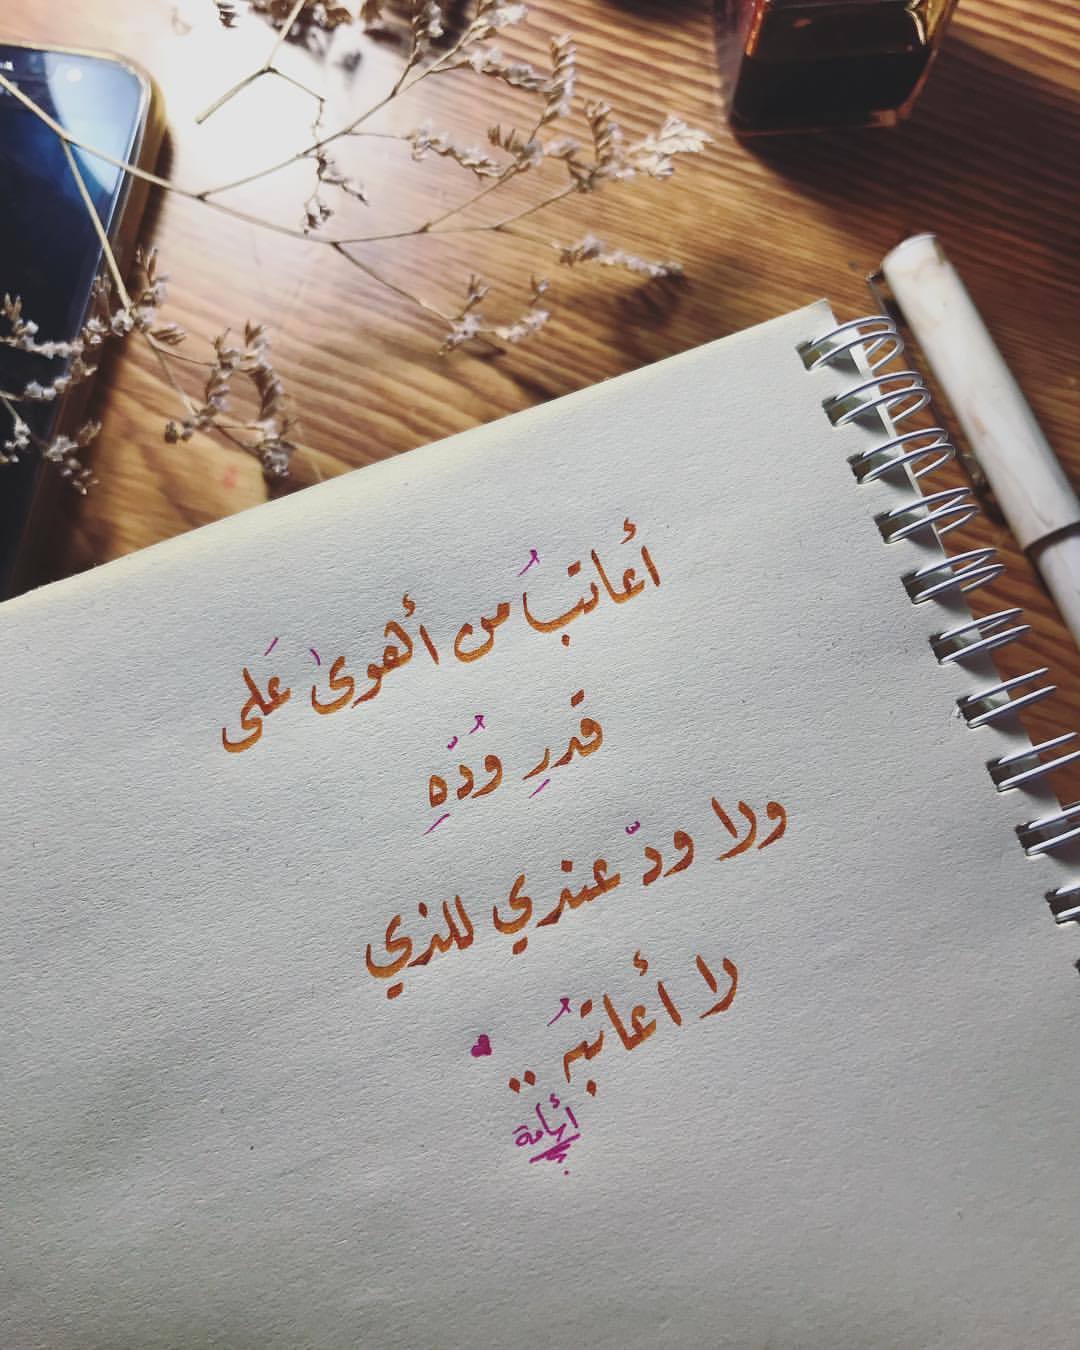 أعاتبُ من أهوىٰ عَلى
قدرِ وُدّهِ
ولا ودّ عندي للذي
لا أعاتبهُ..